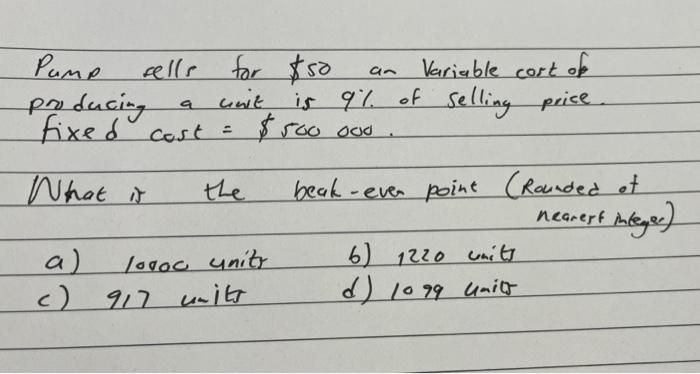 Pump sells for $50 an Variable cost of
producing a unit is 9% of selling price.
fixed cost = $500 000.
What is the beak-even point (Rounded of
nearest integer)
a) 10000 units b) 1220 units
c) 917 units d) 1099 units